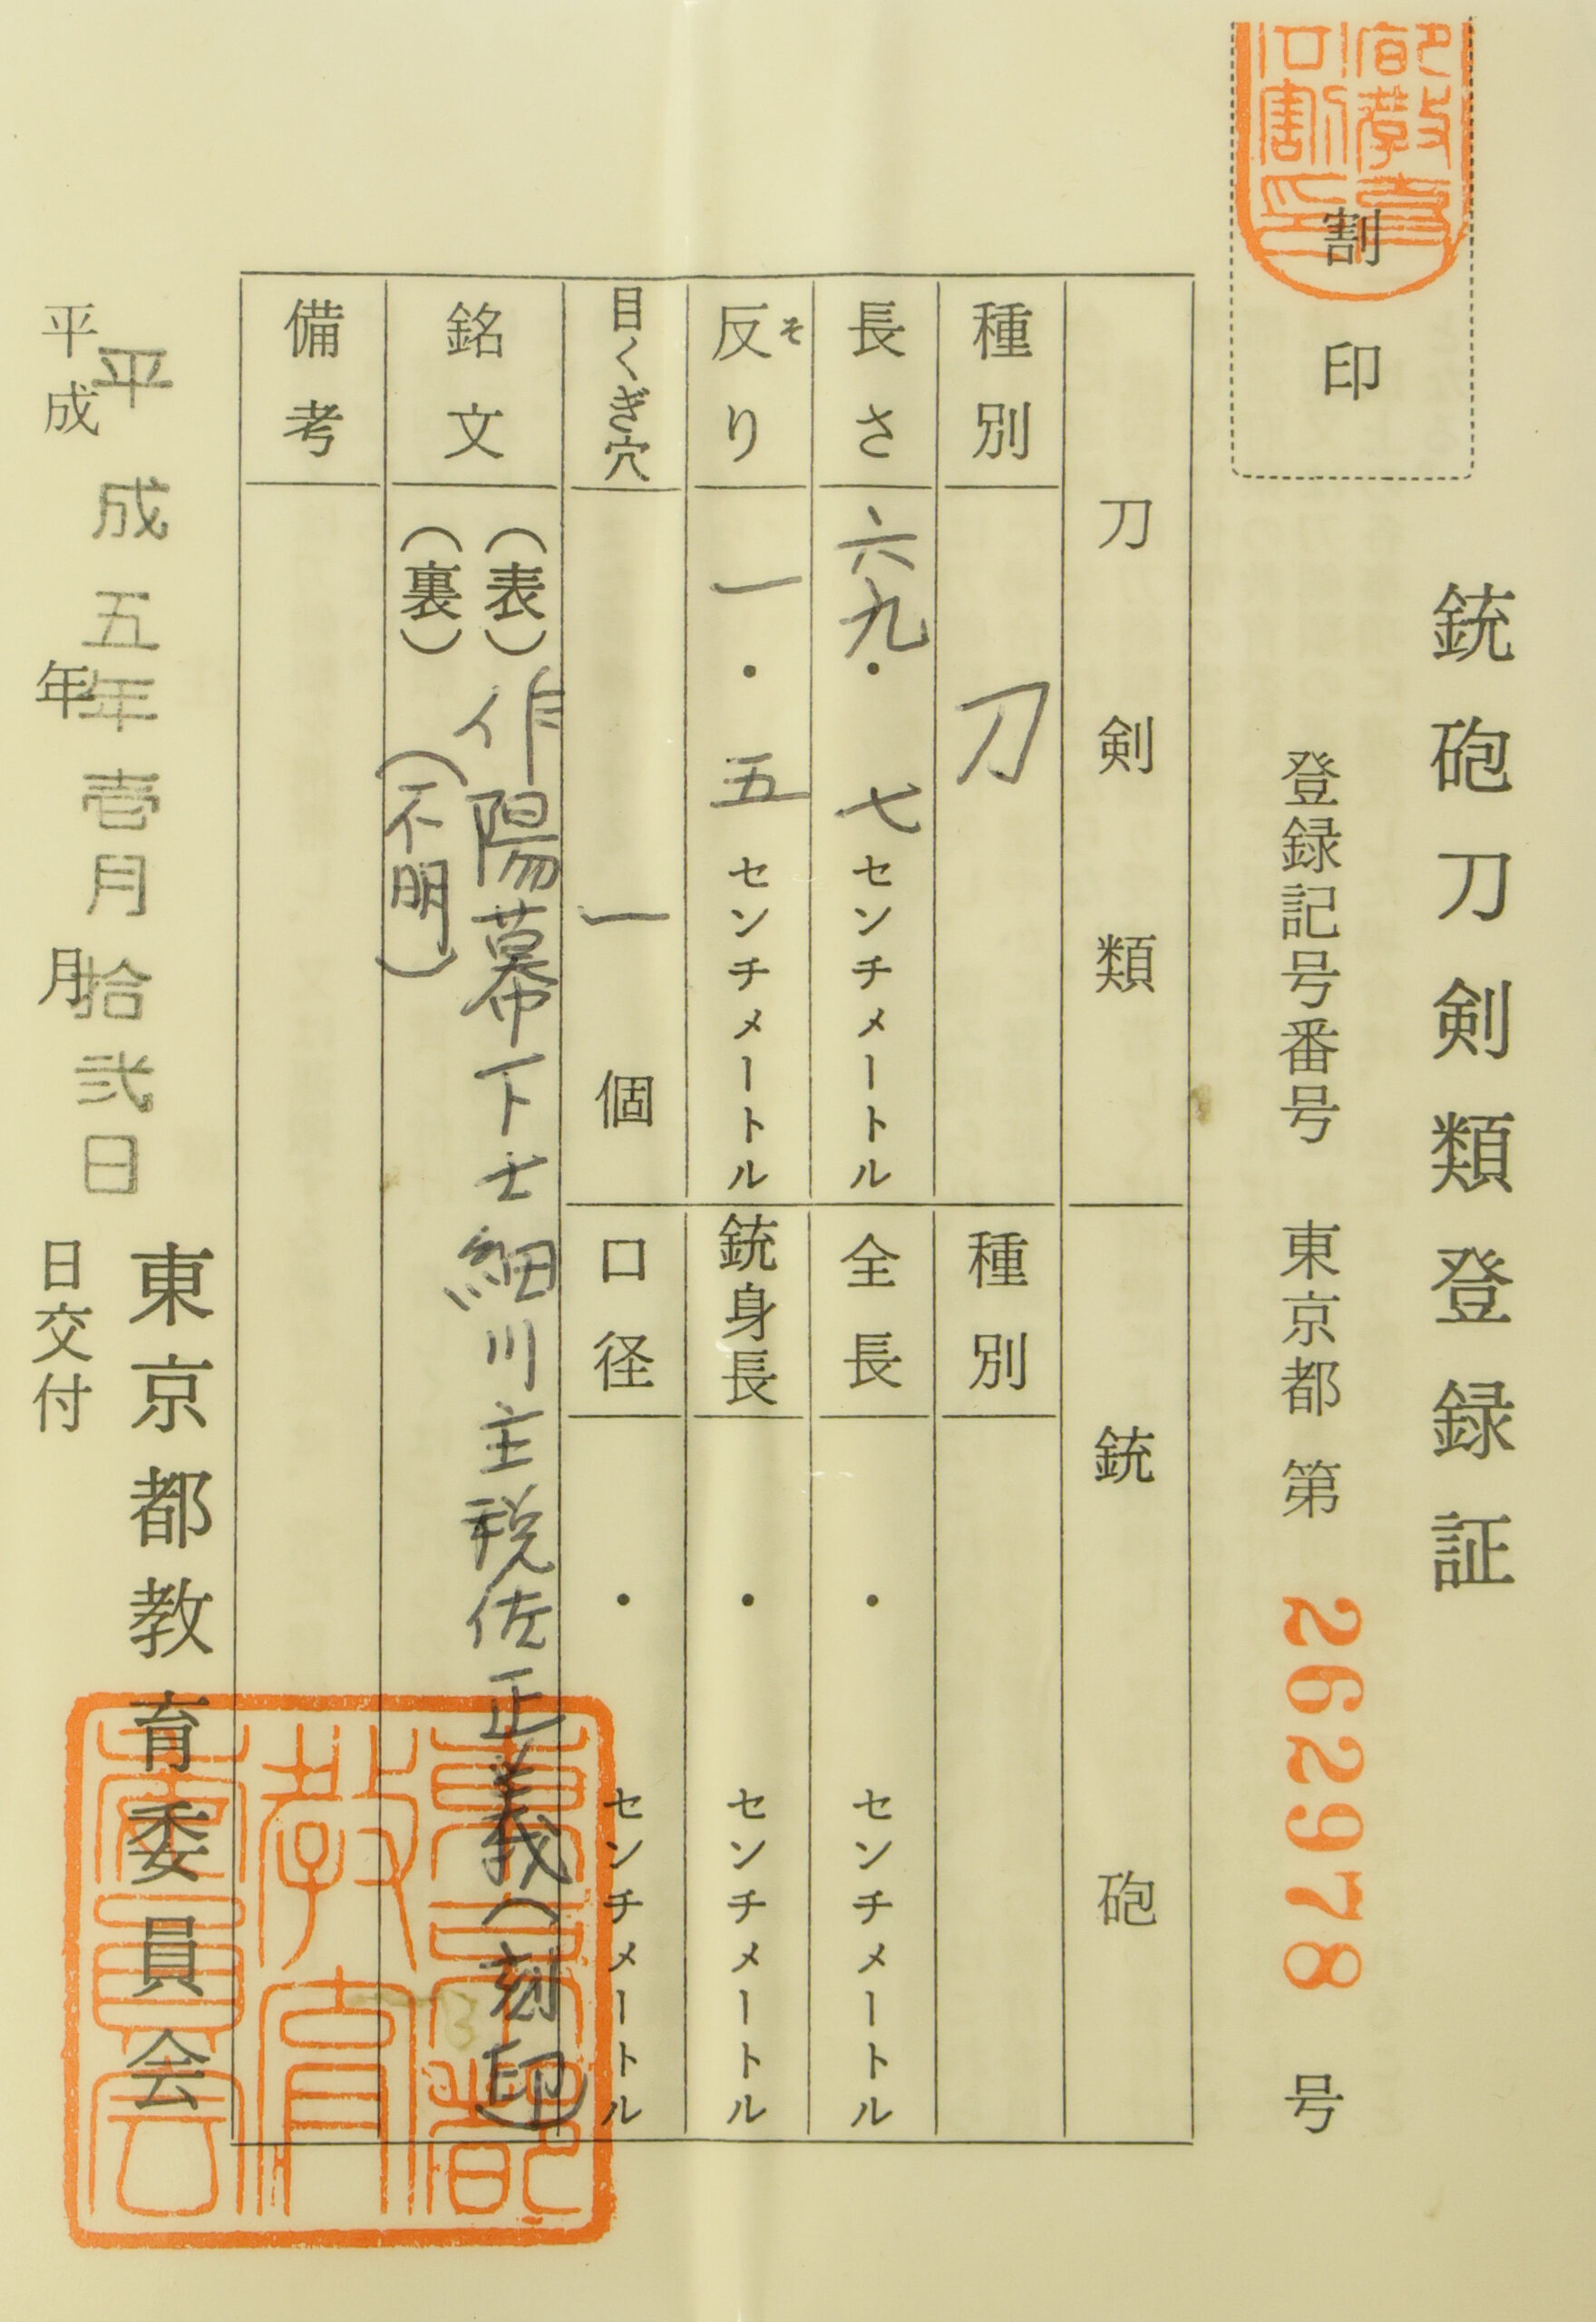 銃砲刀剣類登録証
割印
登録記号番号 東京都 第 262978 号
刀剣類
種別 刀
長さ 六九・七センチメートル
反り 一・五センチメートル
そ
目くぎ穴 一個
銃砲
種別
全長 ・ センチメートル
銃身長 ・ センチメートル
口径 ・ センチメートル
銘文
(表) 作陽幕下士細川主税佐正義(刻印)
(裏) (不明)
備考
平成五年壱月拾弐日
東京都教育委員会
平成 年 月 日交付